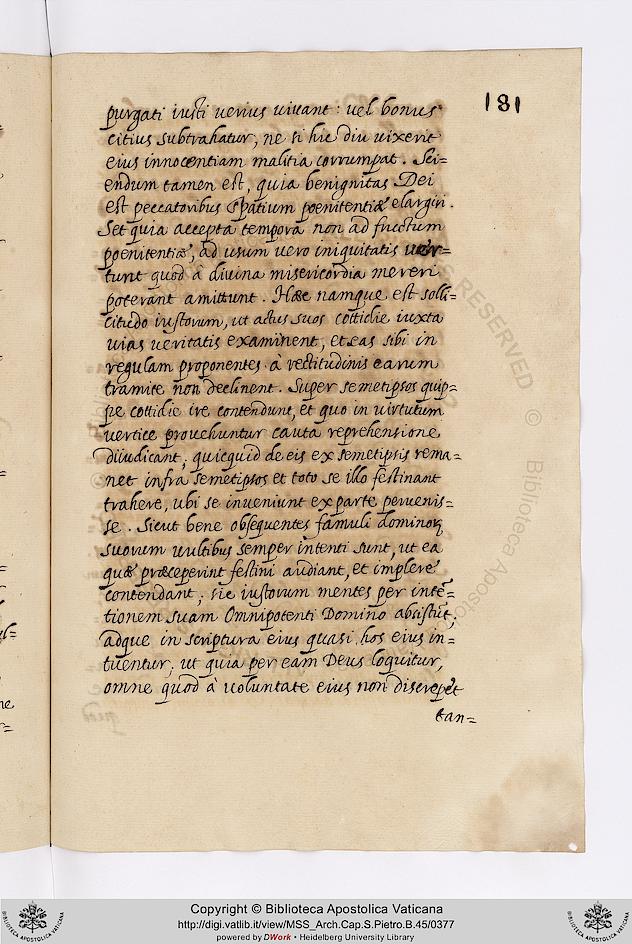 181
purgati iusti uerius uiuant: uel bonus
citius subtrahatur, ne si hic diu uixerit
eius innocentiam malitia corrumpat. Sci=
endum tamen est, quia benignitas Dei
est peccatoribus spatium poenitentiæ elargiri.
Set quia accepta tempora non ad fructum
poenitentiæ, ad usum uero iniquitatis uer=
tunt quod à diuina misericordia mereri
poterant amittunt. Haec namque est solli=
citudo iustorum, ut actus suos cottidie iuxta
uias veritatis examinent, et eas sibi in
regulam proponentes à rectitudinis earum
tramite non declinent. Super semetipsos quip=
pe cottidie ire contendunt, et quo in uirtutum
vertice prouehuntur cauta reprehensione
diiudicant, quicquid de eis ex semetipsis rema=
net infra semetipsos et toto se illo festinant
trahere, ubi se inueniunt ex parte peruenis=
se. Sicut bene obsequentes famuli dominoꝝ
suorum uultibus semper intenti sunt, ut ea
quæ præceperint festini audiant, et implere
contendant; sic iustorum mentes per intē=
tionem suam Omnipotenti Domino absistūt,
adque in scriptura eius quasi hos eius in=
tuentur, ut quia per eam Deus loquitur,
omne quod à uoluntate eius non discrepet
tan=
Copyright © Biblioteca Apostolica Vaticana
http://digi.vatlib.it/view/MSS_Arch.Cap.S.Pietro.B.45/0377
powered by DWork • Heidelberg University Library